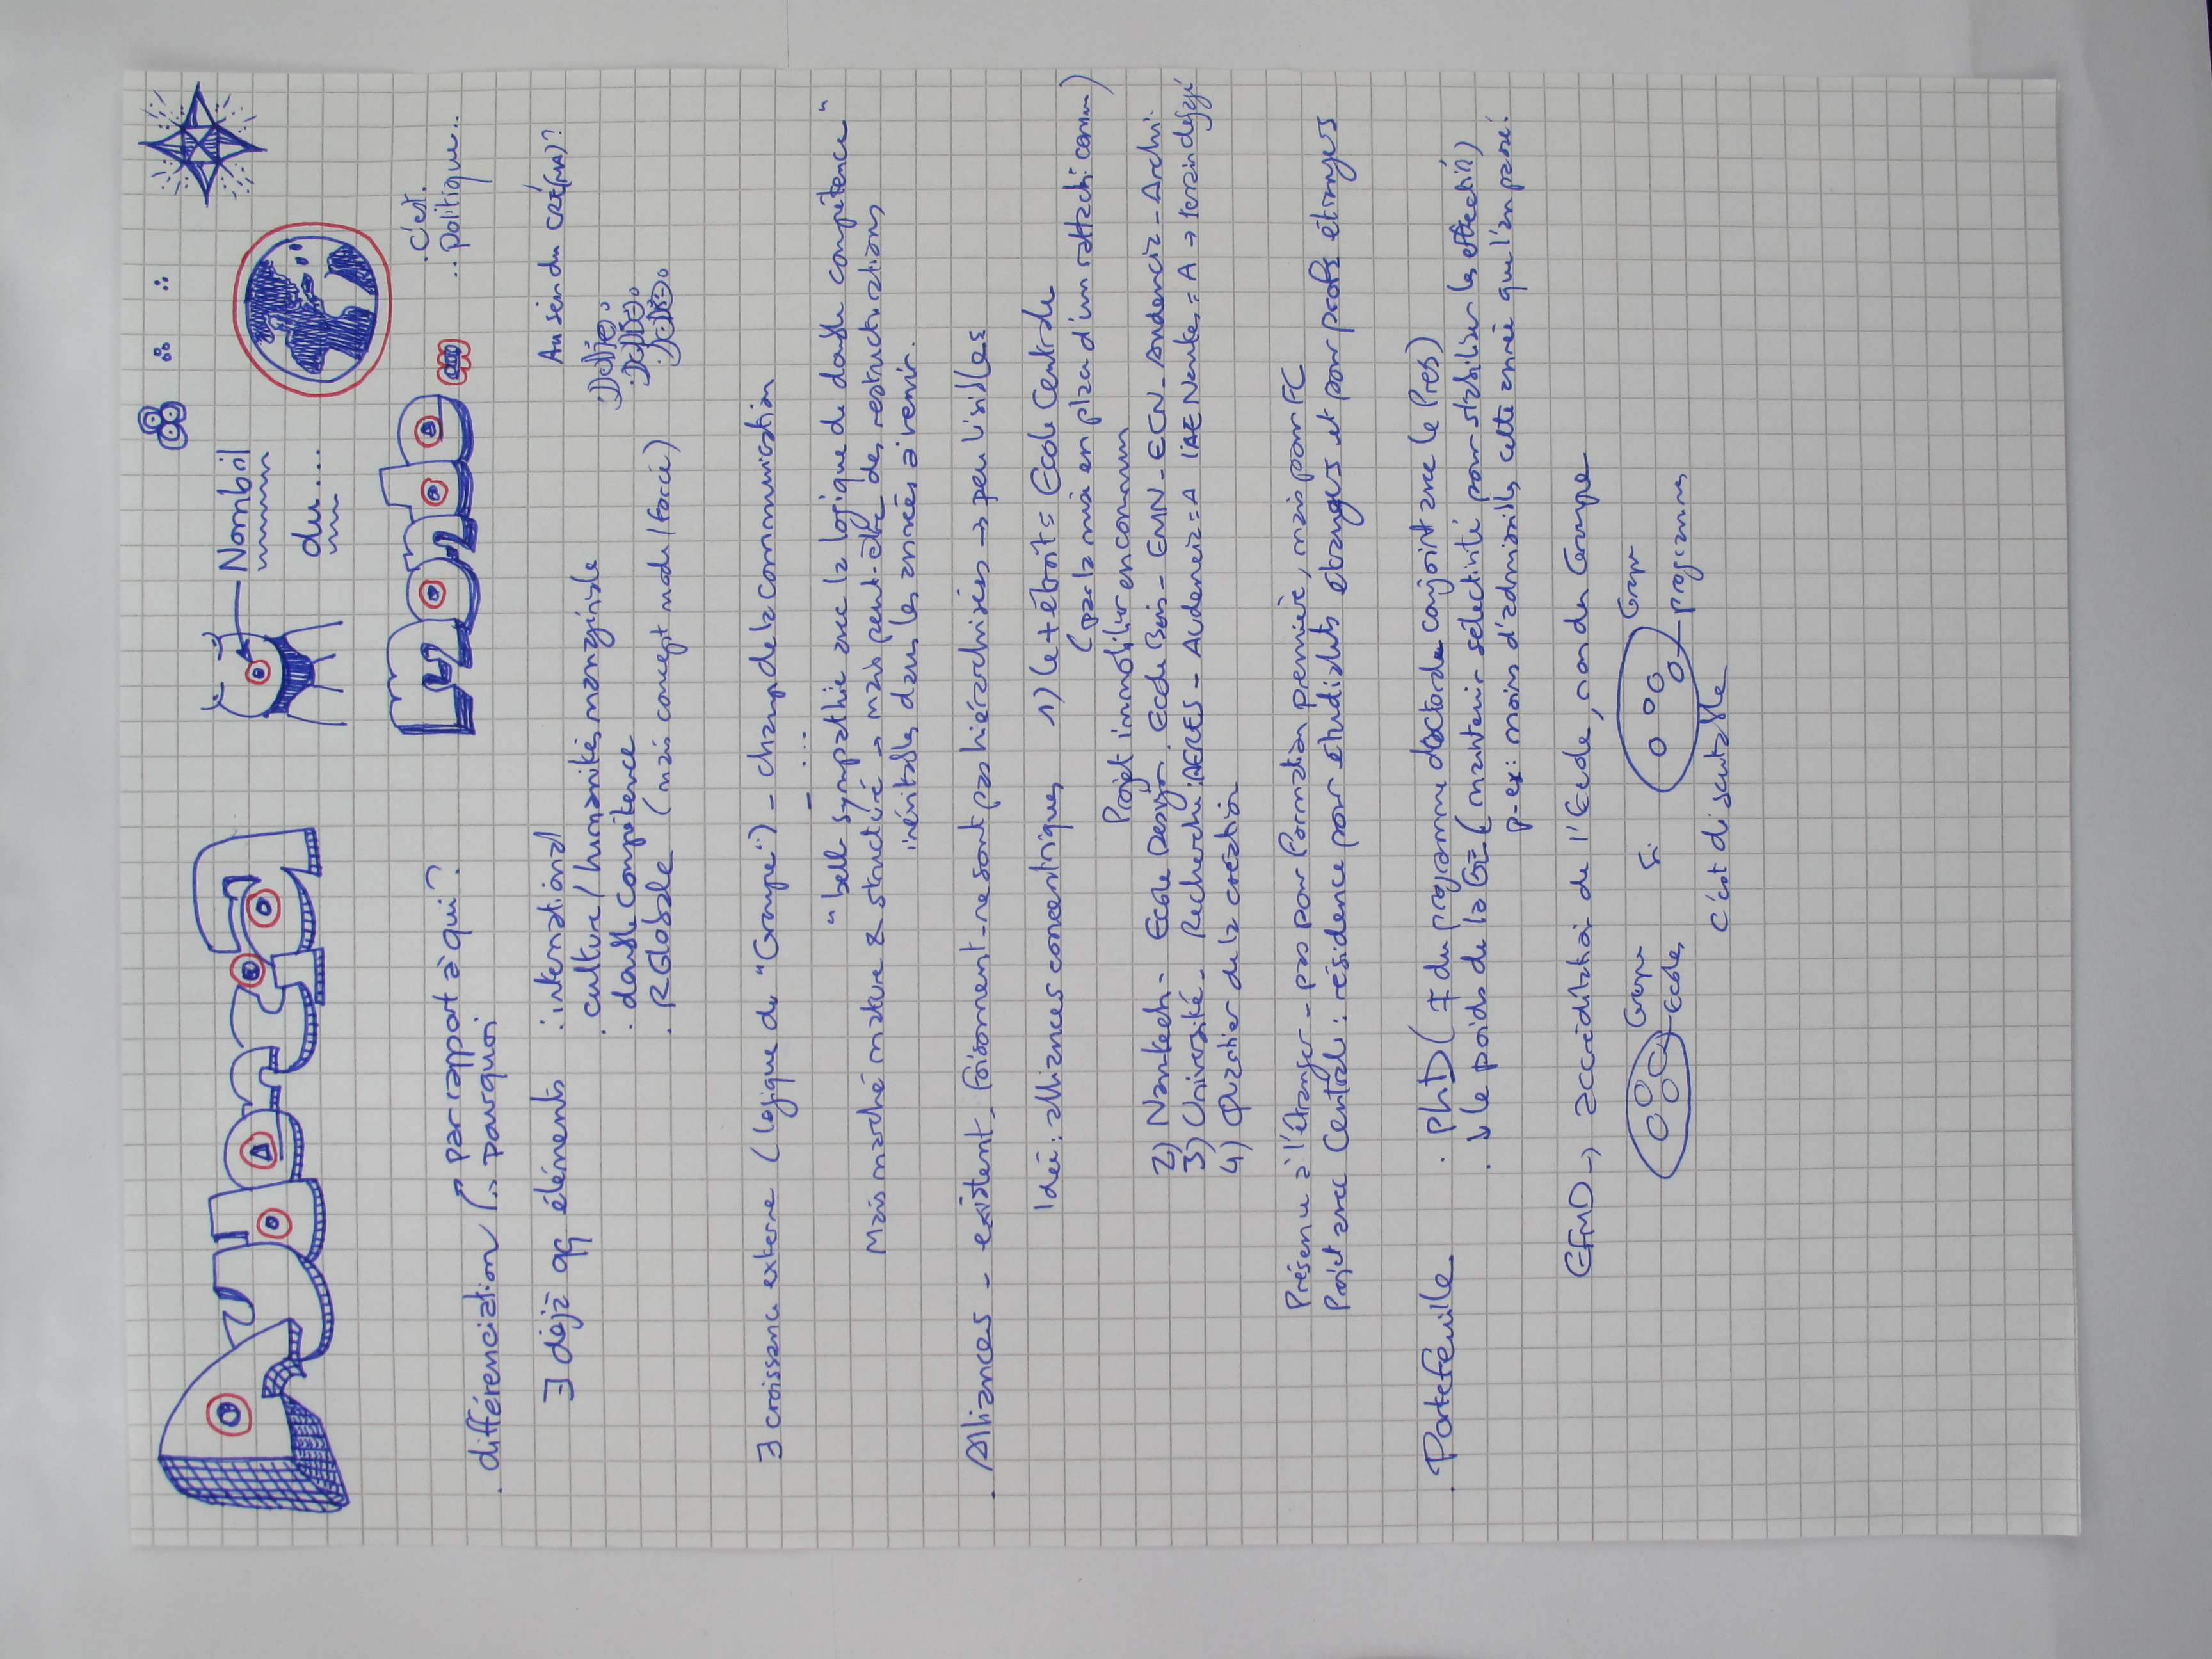 Nombril
du...
monde
c'est.
...politique...
. différenciation (.. par rapport à qui ?
.. pourquoi
∃ déjà qq éléments . international
. culture / humanités managériale
. double compétence
. RGlobale (mais concept mode / forcé)
Au sein du CRÉ(MA)?
∃ croissance externe (logique de "Groupe") - champ de la communication
"belle sympathie avec la logique de double compétence"
Mais marché mature & structuré → mais peut-être des restructurations
inévitables dans les années à venir.
. Alliances - existent, foisonnent - ne sont pas hiérarchisées → peu lisibles
Idée : alliances concentriques 1) le + étroit = Ecole Centrale
(par la mise en place d'un rattachi comm)
Projet immobilier en commun
2) Nantech - Ecole Design. Ecole Bois - EMN - ECN - Audencia - Archi.
3) Université - Recherche: AERES - Audencia = A IAE Nantes = A →
4) Quartier de la création
Présence à l'étranger - pas pour formation première, mais pour FC
Projet avec Centrale : résidence pour étudiants étrangers et pour profs étrangers
. Portefeuille . PhD (≠ du programme doctorale conjoint avec le Pres)
. ↳ le poids de la GE (maintenir sélectivité pour stabiliser les effectifs)
p-ex: moins d'admissibles cette année que l'an passé.
EFMD → accréditation de l'Ecole, non du Groupe
Groupe
Ecoles
Si
Groupe
programmes
C'est discutable